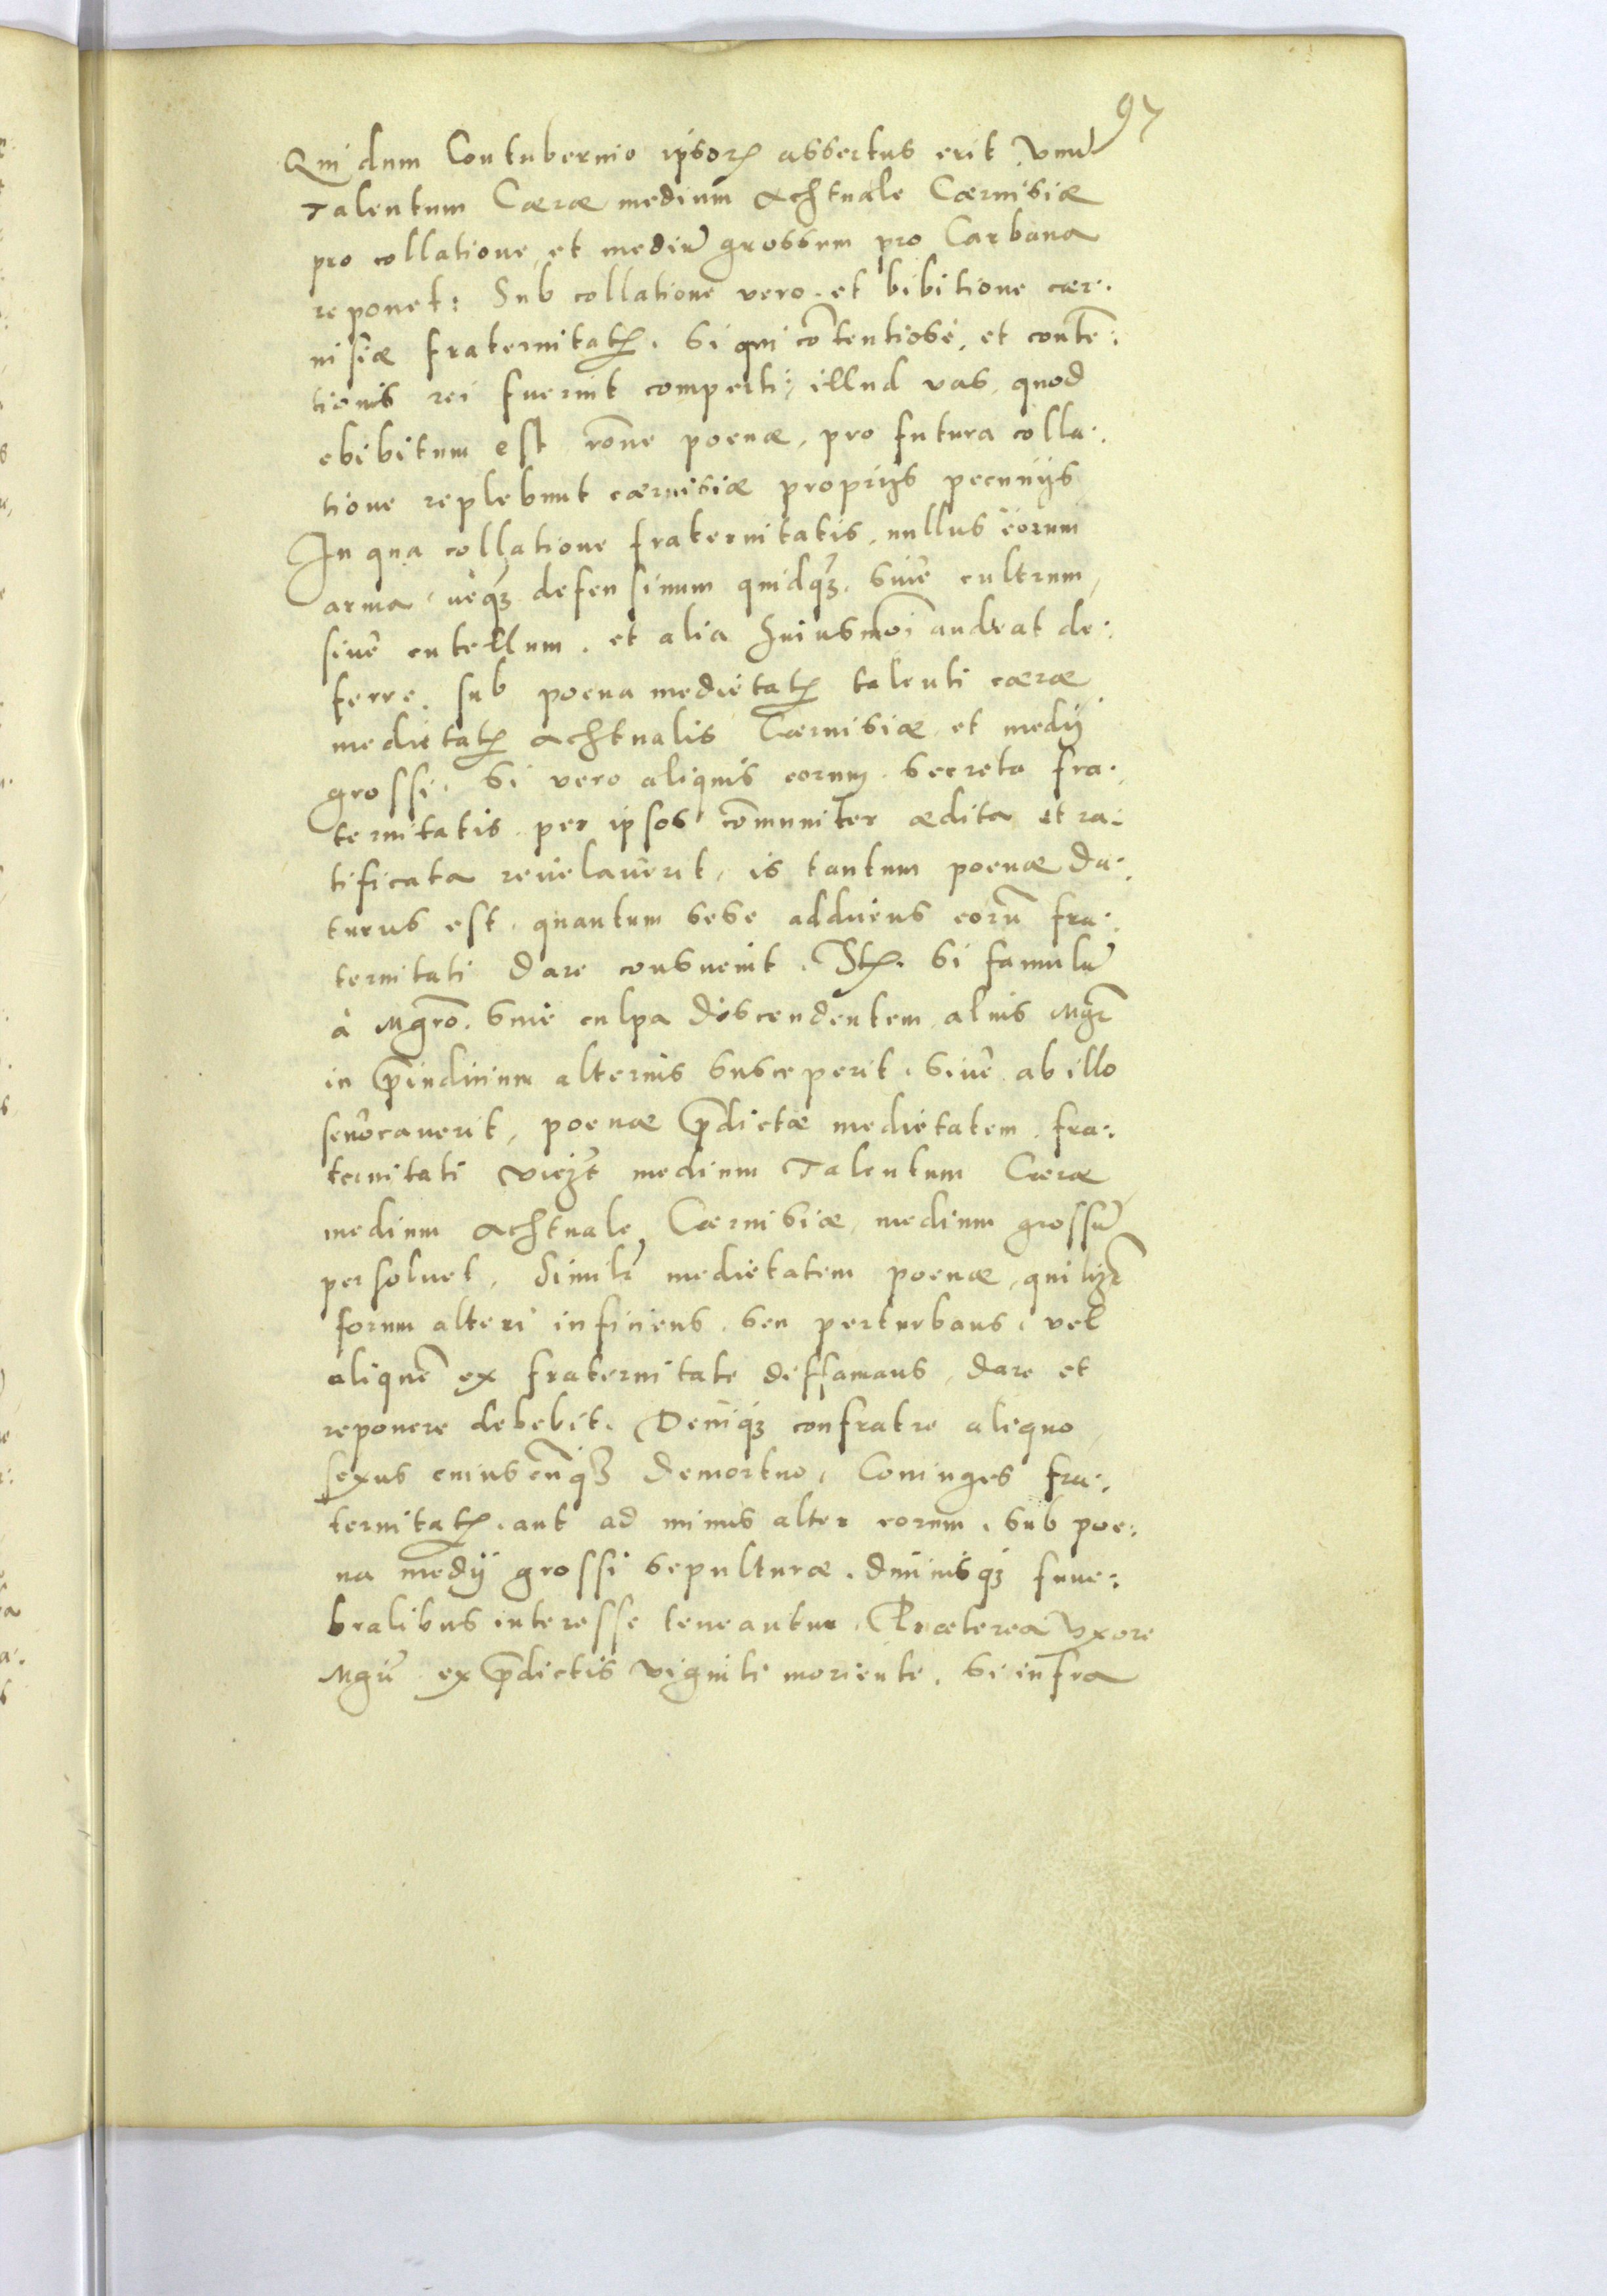 97
Qui dum Contubernio ipsorꝝ assertus erit vnũ
Talentum Caeræ medium Achtuale Cærnisiæ
pro collatione, et mediũ grossum pro Carbana
reponet: Sub collatione vero et bibitione cær:
nisiæ fraternitatꝭ. Si qui cõtentiose, et contẽ:
tionis rei fuerint comperti, illud vas, quod
ebibitum est rõne poenæ, pro futura colla:
tione replebunt cærnisiæ propriis pecuniis
In qua collatione fraternitatis, nullus eorum
arma, neqꝫ defensiuum quidqꝫ, siue cultrum,
siue cutellum, et alia huiusmõi audeat de:
ferre, sub poena medietatꝭ talenti cæræ
medietatꝭ Achtualis Cærnisiæ et medij
grossi. Si vero aliquis eorum secreta fra:
ternitatis per ipsos cõmuniter ædita et ra:
tificata reuelauerit, is tantum poenæ da:
turus est, quantum sese adduens eorũ fra:
ternitati dare consueuit. Itꝭ. Si famulũ
à Mgrõ. sine culpa discendentem alius Mgr̃
in p̃iudicium alterius susceperit, siue ab illo
seuocauerit, poenæ p̃dictæ medietatem fra:
ternitati vicꝫt medium Talentum Cæræ
medium Achtuale Cærnisiæ, medium grossũ
persoluet, Similr̃ medietatem poenæ, quilꝫt
forum alteri inficiens, seu perturbans, vel
aliquẽ ex fraternitate diffamans, dare et
reponere debebit. Deniqꝫ confratre aliquo
sexus cuiuscũqꝫ demortuo, Coniuges fra:
ternitatꝭ, aut ad minus alter eorum, sub poe:
na medij grossi sepulturæ, diuinisqꝫ fune:
bralibus interesse teneantur. Præterea vxore
Mgrũ ex p̃dictis viginti moriente, si infra